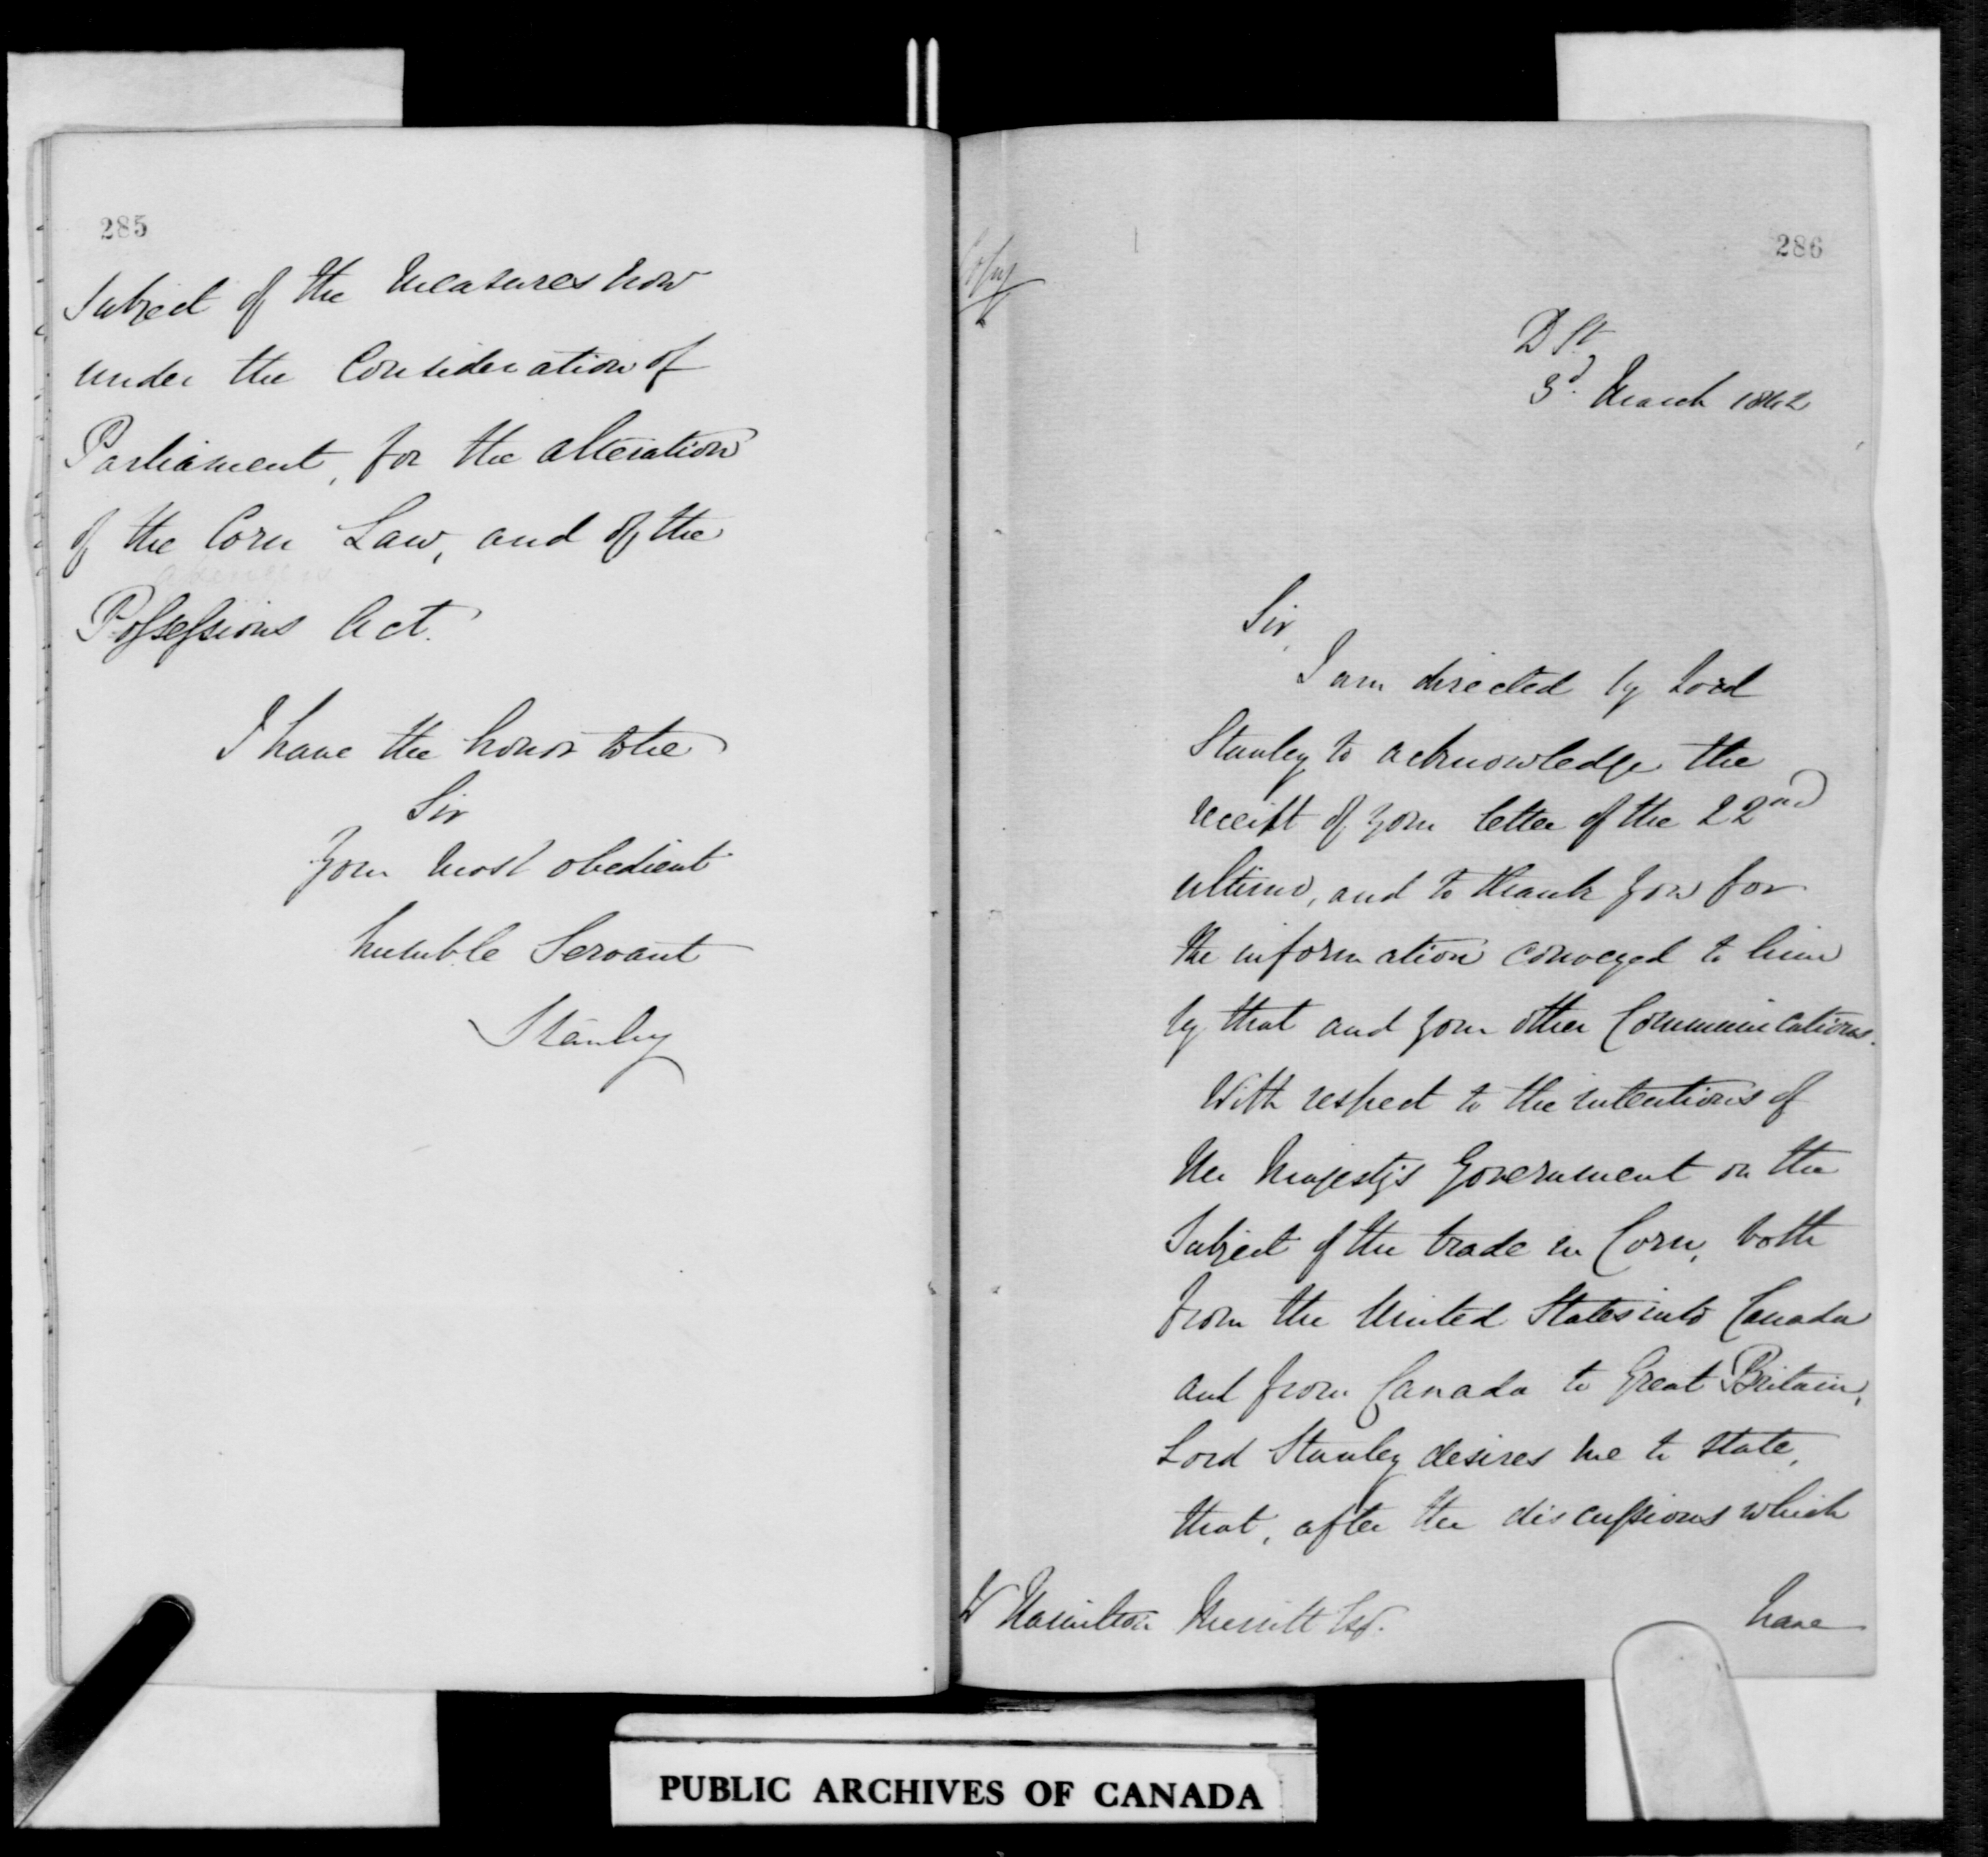 285
Subject of the Measures now
under the Consideration of
Parliament, for the alteration
of the Corn Law, and of the
Possessions Act.
I have the honor to be
Sir
Your most obedient
humble Servant
Stanley
286
Copy
D St
3d. March 1842
Sir,
I am directed by Lord
Stanley to acknowledge the
receipt of your letter of the 22nd
ultimo, and to thank you for
the information conveyed to him
by that and your other Communications.
With respect to the intentions of
Her Majesty's Government on the
Subject of the trade in Corn, both
from the United States into Canada
and from Canada to Great Britain,
Lord Stanley desires me to state,
that, after the discussions which
W Hamilton Merritt Esq.
have
PUBLIC ARCHIVES OF CANADA